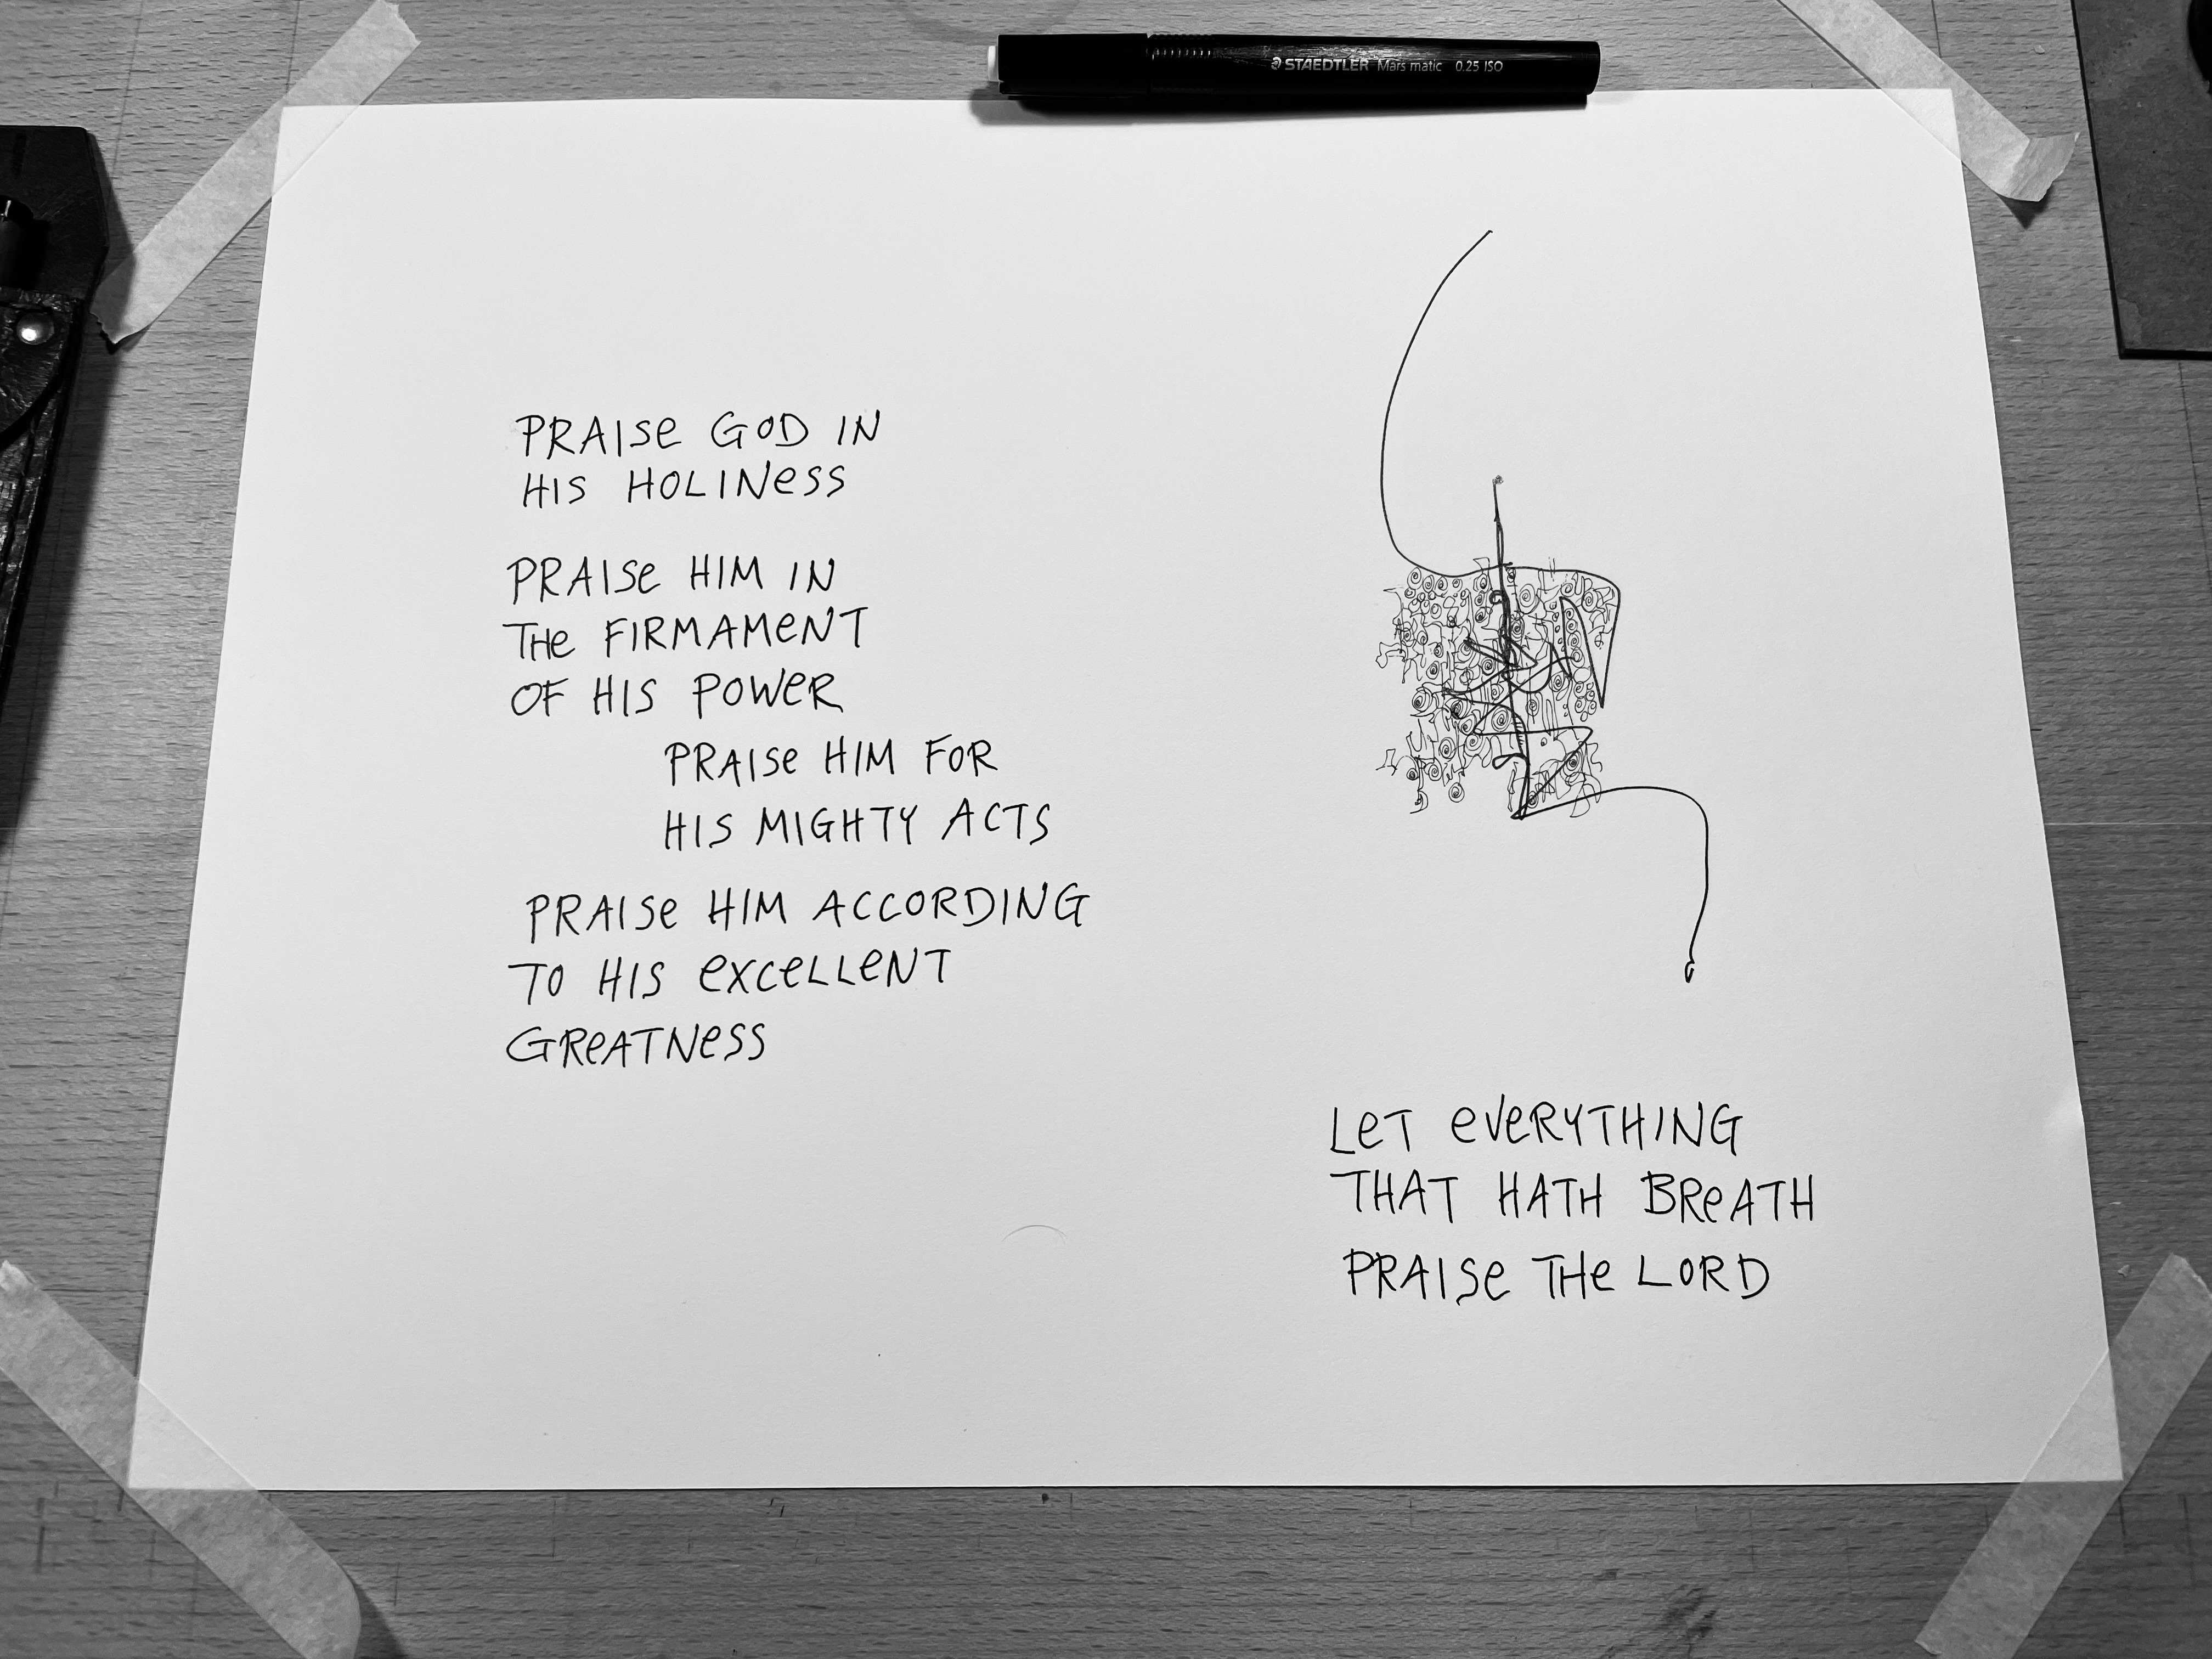 STAEDTLER Mars matic 0.25 ISO
PRAISe GOD IN
HIS HOLINeSS
PRAISe HIM IN
THe FIRMAMeNT
OF HIS POWeR
PRAISe HIM FOR
HIS MIGHTY ACTS
PRAISe HIM ACCORDING
TO HIS eXCeLLeNT
GReATNeSS
LeT eVeRYTHING
THAT HATH BReATH
PRAISe THe LORD